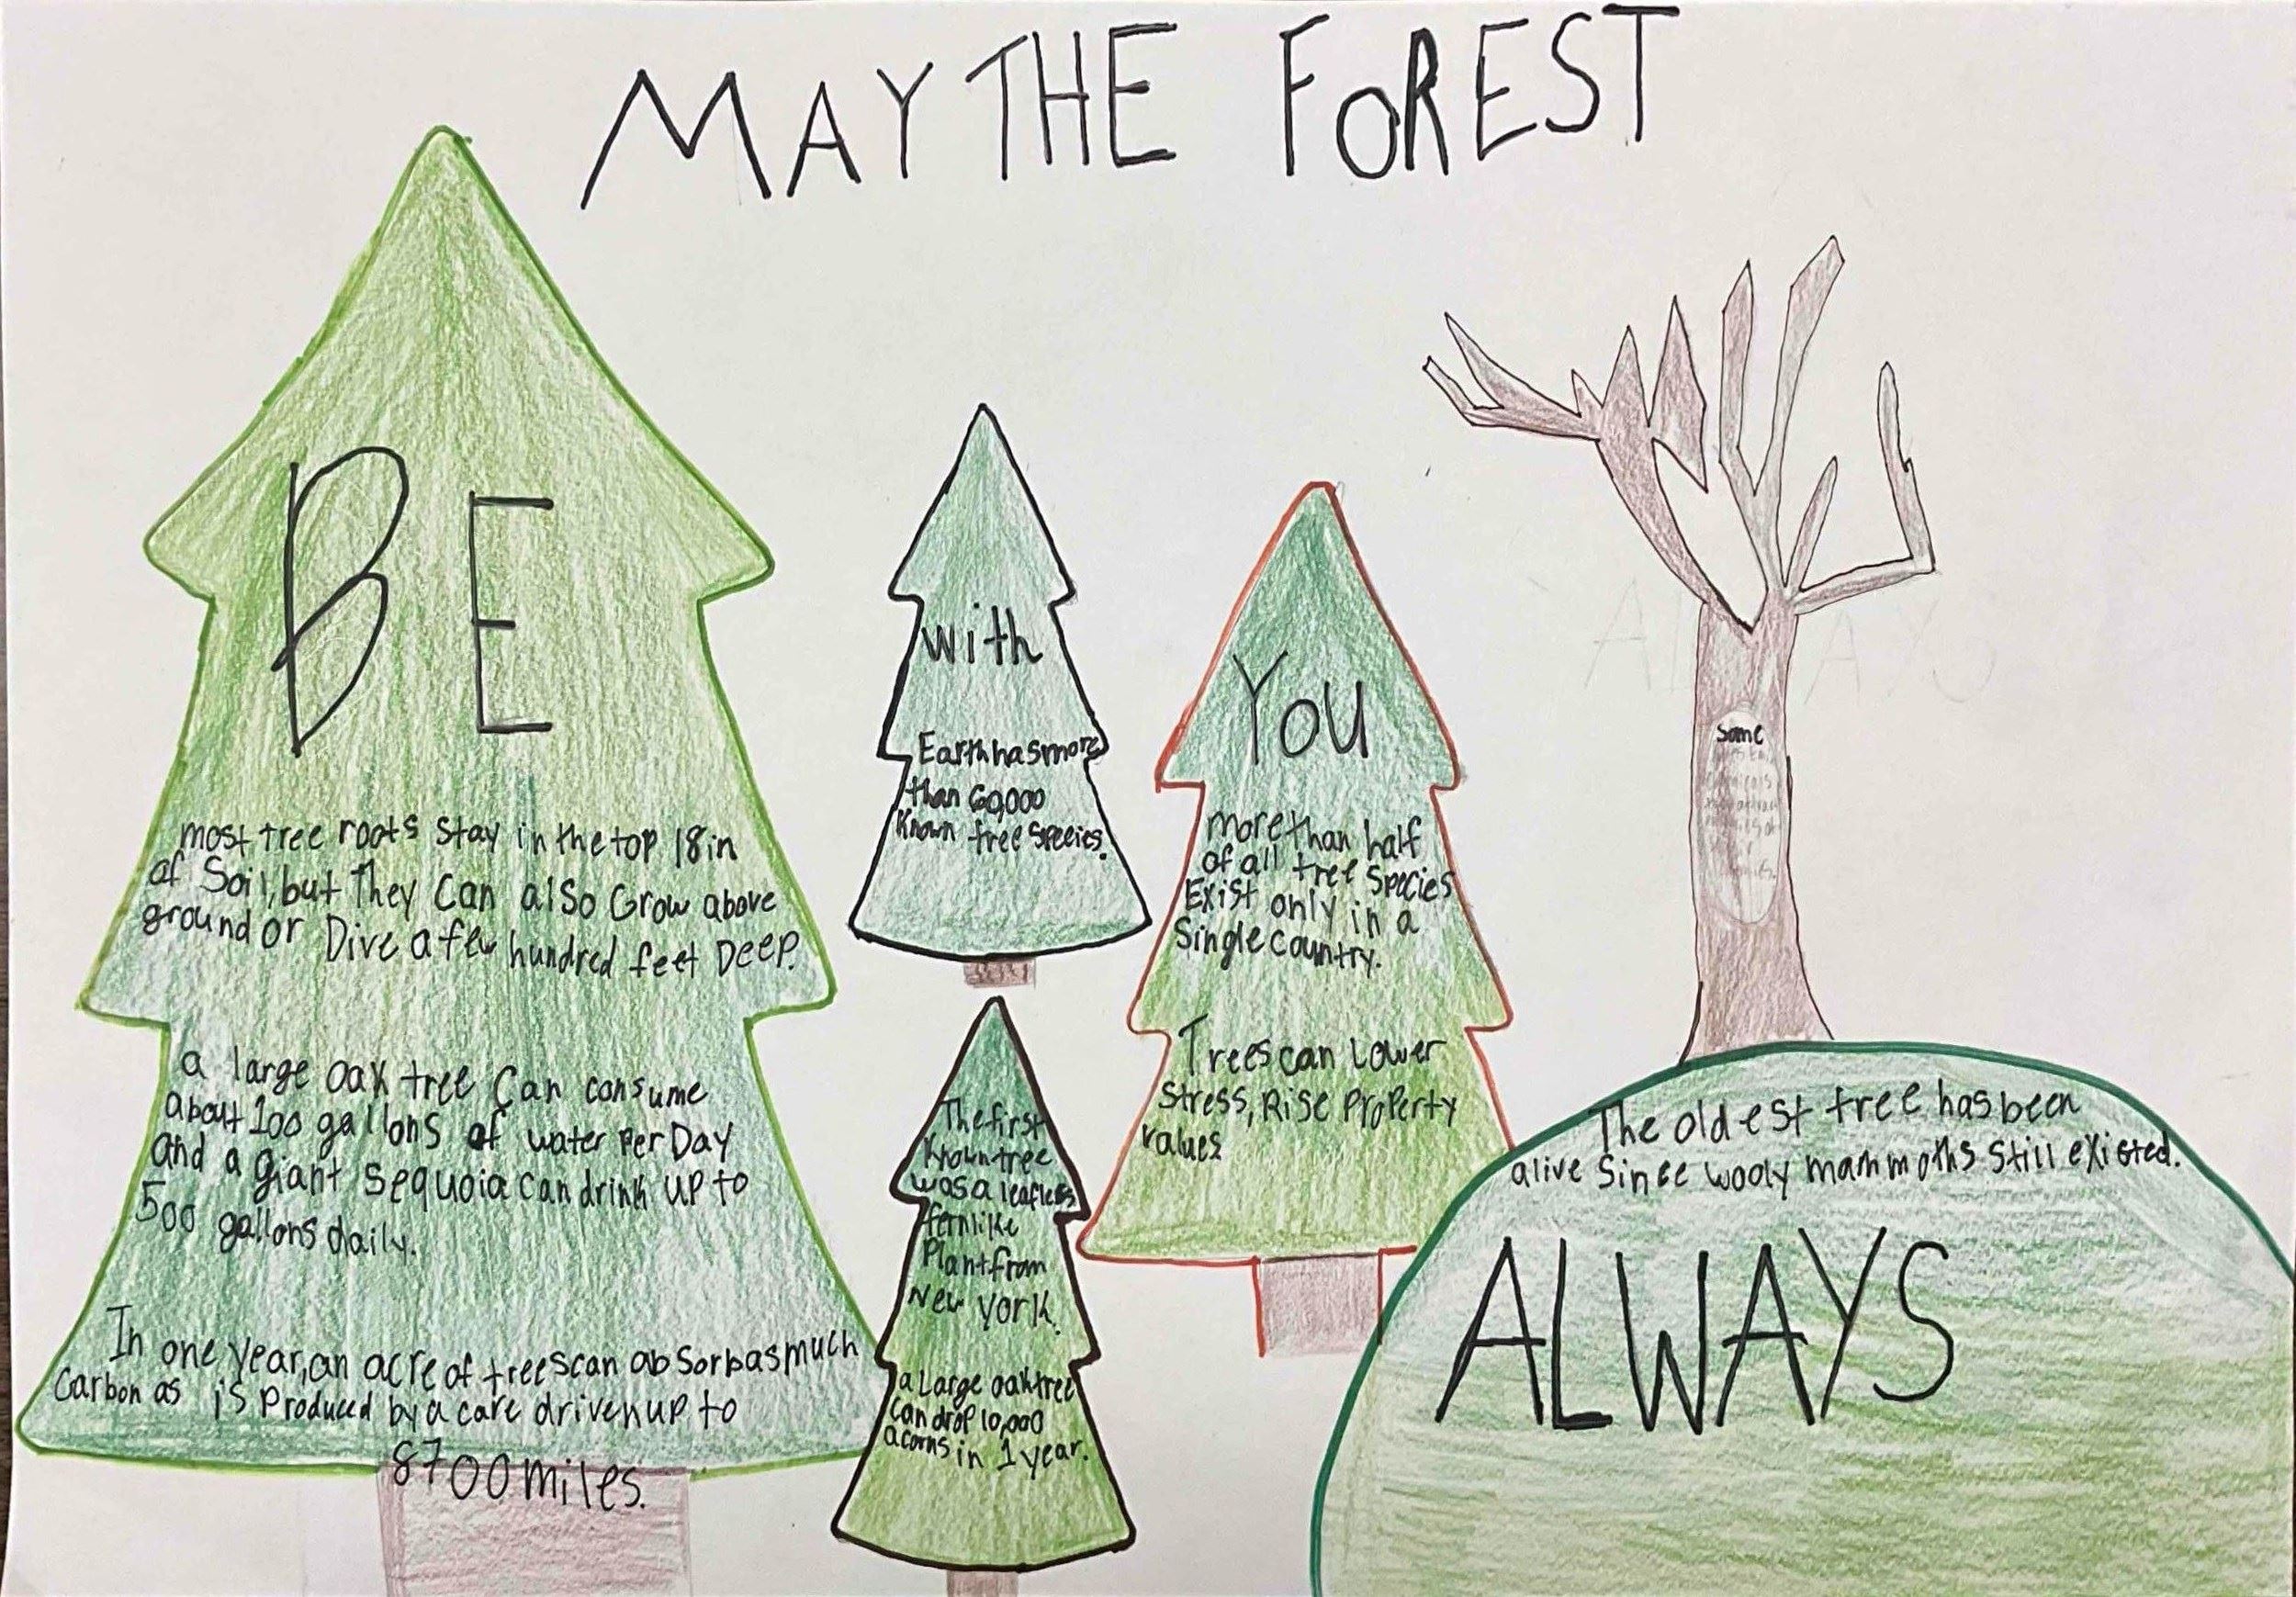 MAY THE FOREST
BE
most tree roots stay in the top 18in
of Soil, but They Can also Grow above
ground or Dive a few hundred feet Deep.
a large oak tree Can consume
about 100 gallons of water Per Day
and a giant Sequoia can drink up to
500 gallons daily.
In one year, an acre of trees can abSorb as much
Carbon as is Produced by a care driven up to
8700 miles.
with
Earth has more
than 60,000
Known tree Species.
The first
Known tree
was a leafless
fernlike
Plant from
New York.
a Large oak tree
can drop 10,000
acorns in 1 year.
You
more than half
of all tree Species
Exist only in a
Single country.
Trees can Lower
Stress, Rise Property
values
ALWAYS
Some
The oldest tree has been
alive Since wooly mammoths Still existed.
ALWAYS